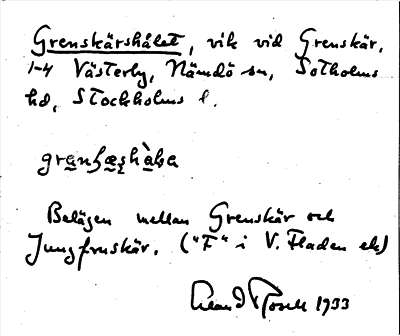 Grenskärshålet, vik vid Grenskär,
1-4 Västerby, Nämdö sn, Sotholms
hd, Stockholms l.
Belägen mellan Grenskär och
Jungfruskär. ("F" i V. Fladen ek)
1933